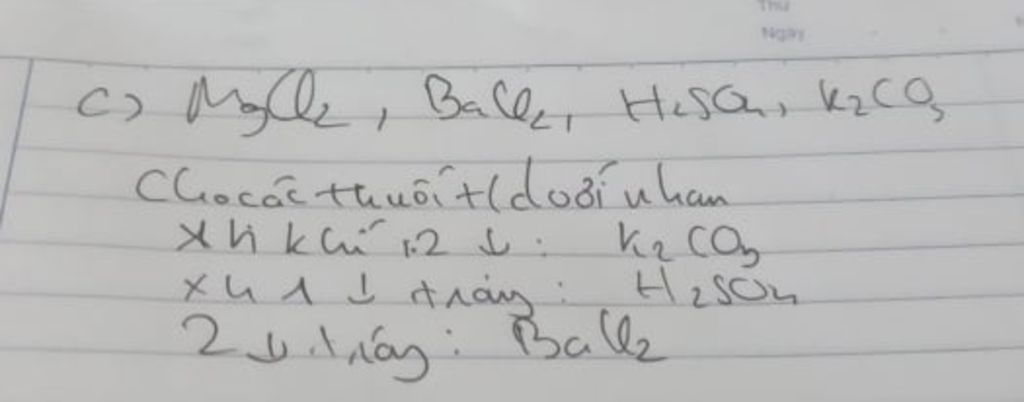 Thứ
Ngày
c) MgCl2, BaCl2, H2SO4, K2CO3
Cho các thuốc thử đối nhau
xh khí, 2 ↓ : K2CO3
xh 1 ↓ trắng : H2SO4
2 ↓ trắng : BaCl2